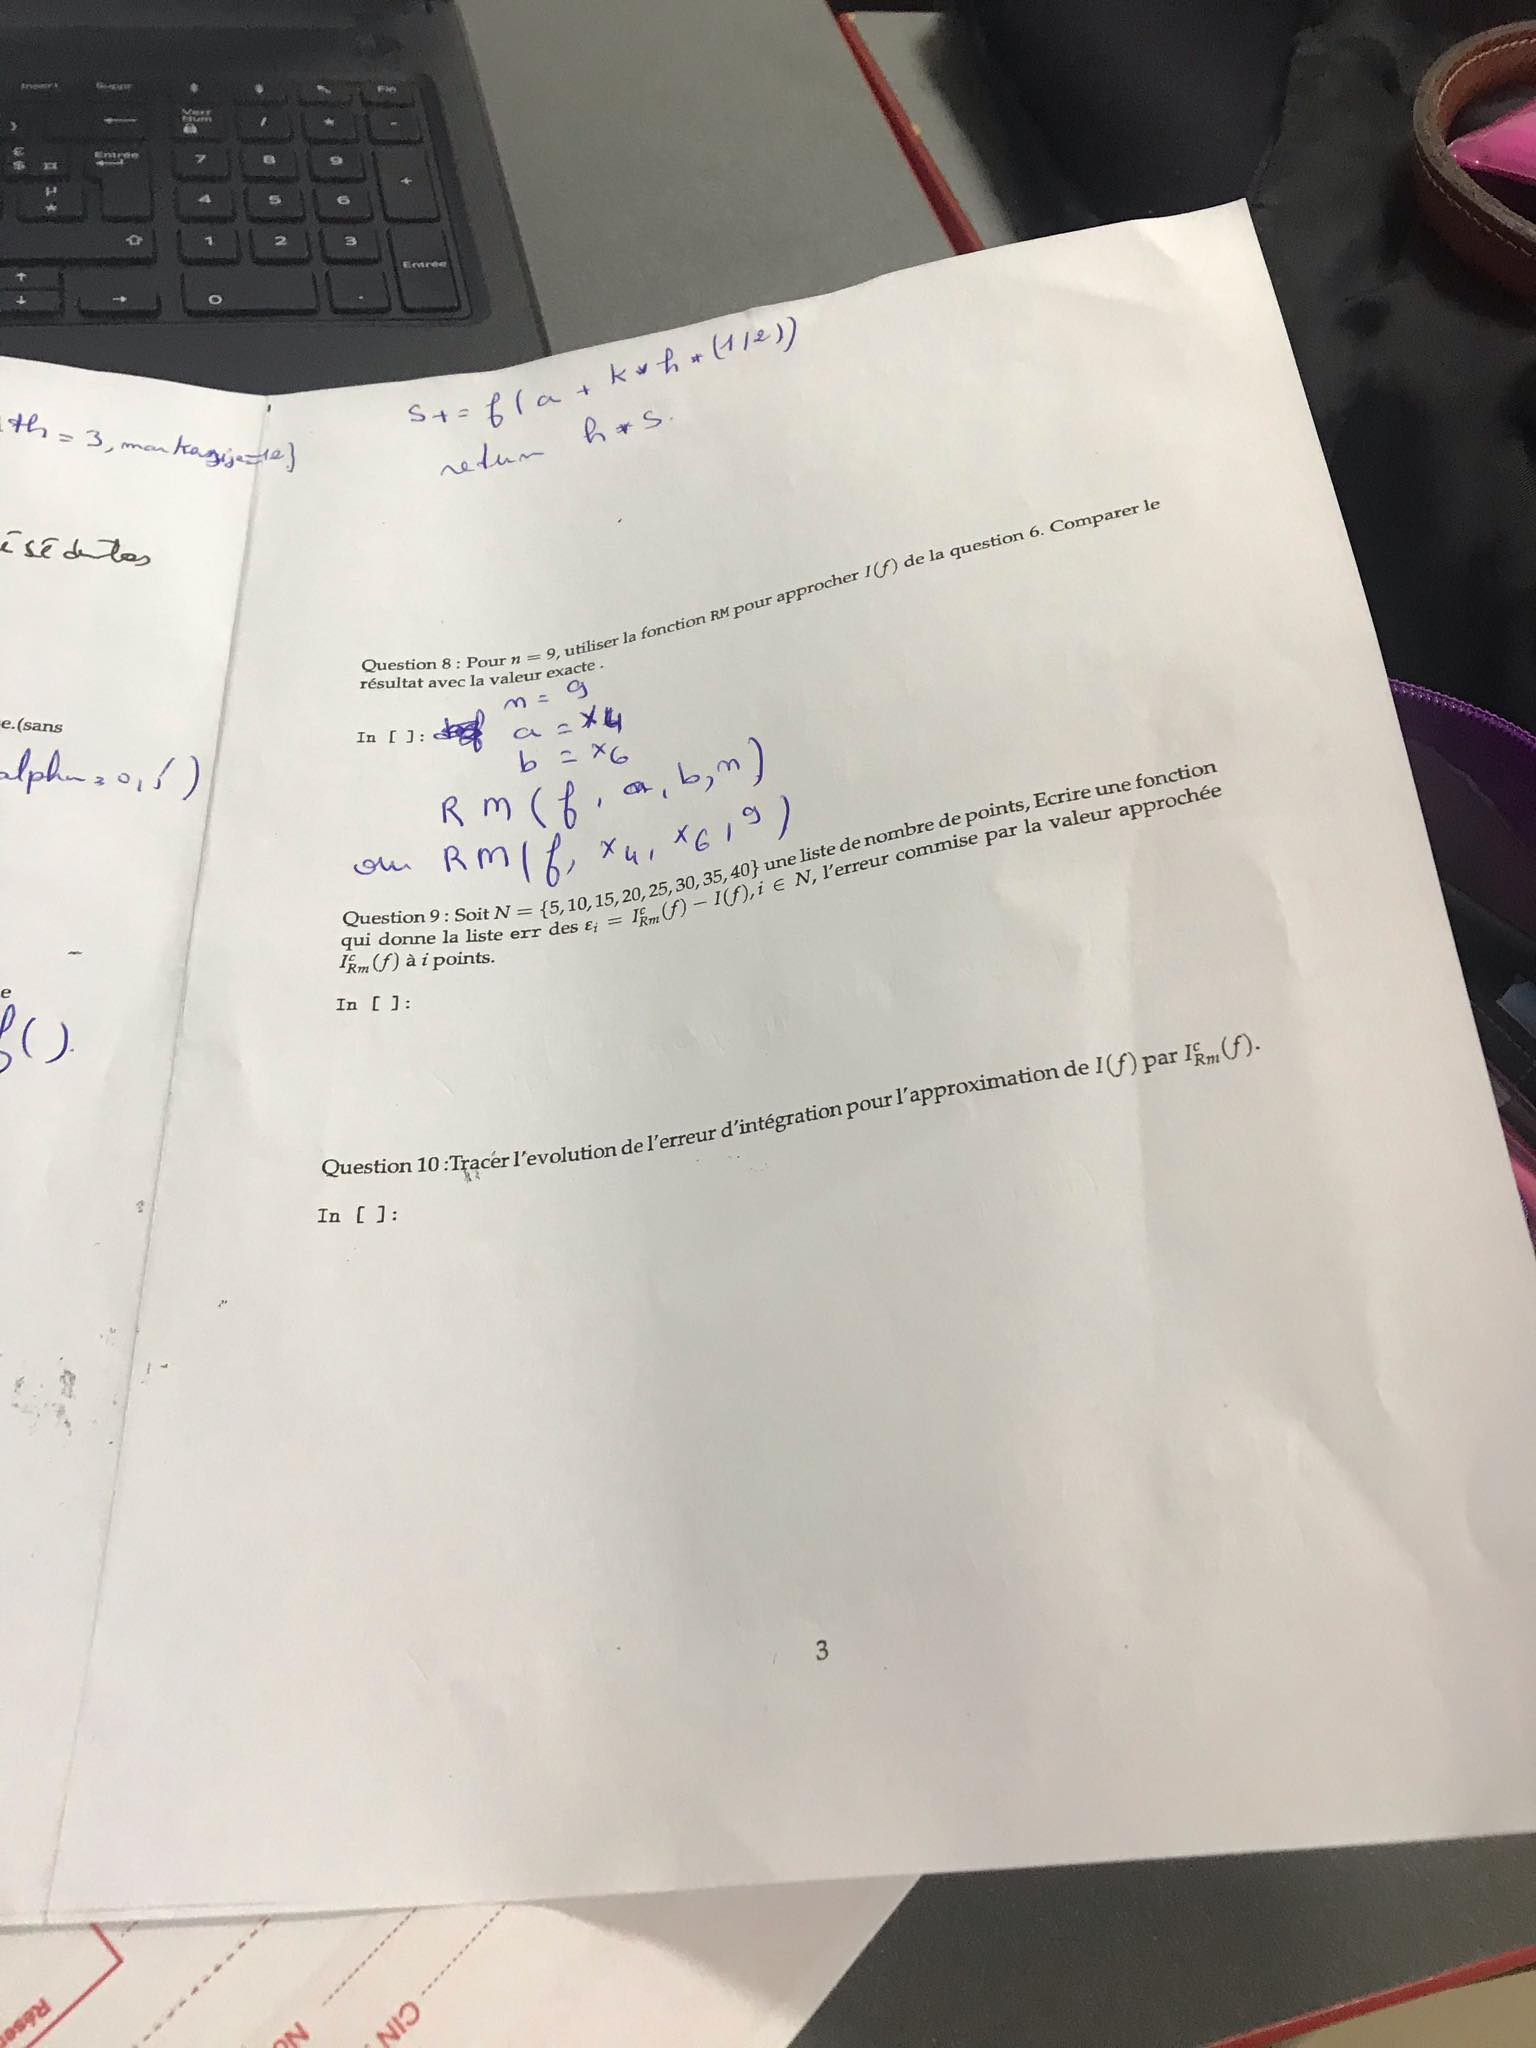 Insert
Suppr
Fin
Verr
Num
/
*
-
£
$ ¤
Entrée
7
8
9
+
µ
*
4
5
6
1
2
3
Entrée
0
.
th = 3, markersize=12)
s += f(a + k*h*(1/2))
return h*s.
Question 8 : Pour n = 9, utiliser la fonction RM pour approcher I(f) de la question 6. Comparer le
résultat avec la valeur exacte .
In [ ]: n = 9
a = x4
b = x6
RM(f, a, b, n)
ou RM(f, x4, x6, 9)
Question 9 : Soit N = {5, 10, 15, 20, 25, 30, 35, 40} une liste de nombre de points, Ecrire une fonction
qui donne la liste err des εi = I^c_Rm(f) − I(f), i ∈ N, l'erreur commise par la valeur approchée
I^c_Rm(f) à i points.
In [ ]:
Question 10 :Tracer l'evolution de l'erreur d'intégration pour l'approximation de I(f) par I^c_Rm(f).
In [ ]:
3
e.(sans
alpha = 0,5)
e
f().
CIN